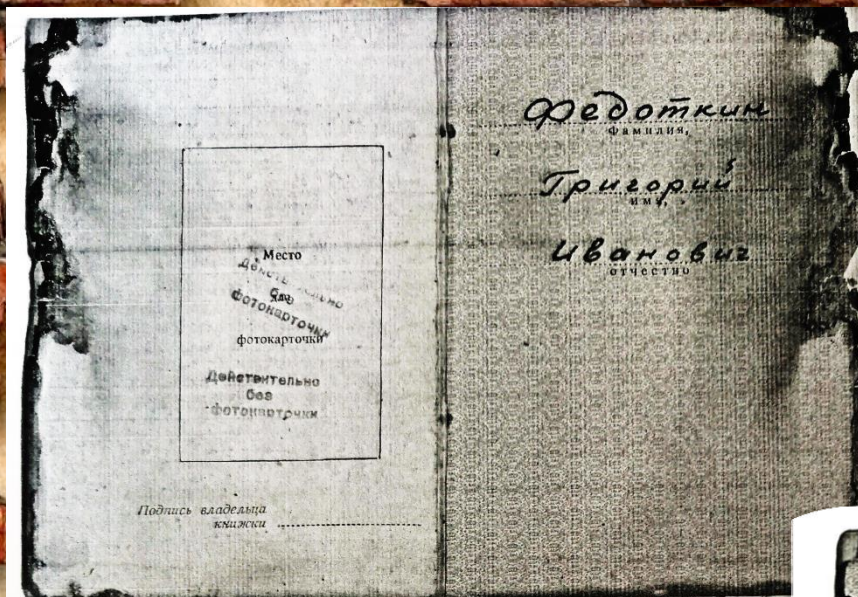 Место
для
фотокарточки
Действительно
без
фотокарточки
Действительно
без
фотокарточки
Подпись владельца
книжки
Федоткин
фамилия,
Григорий
имя,
Иванович
отчество